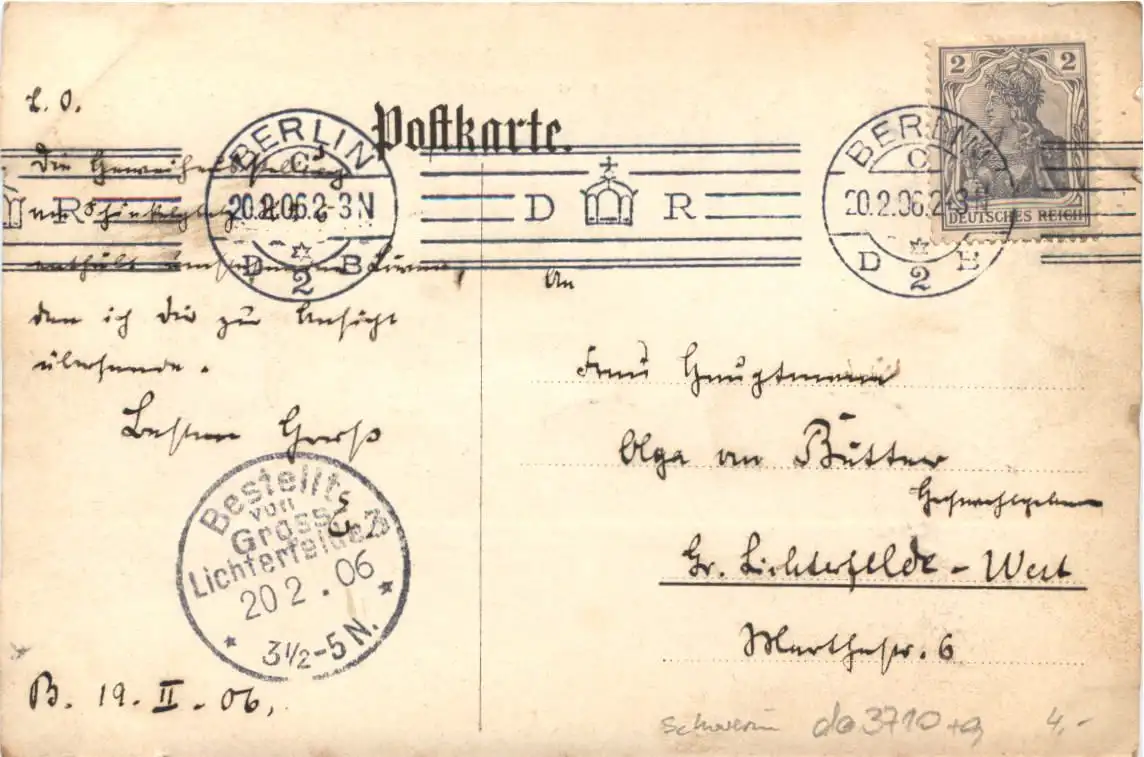 Postkarte.
2 2
DEUTSCHES REICH
BERLIN
C
20.2.06.2-3N
D B
2
D R
BERLIN
C
20.2.06.2-3N
D B
2
R
L. O.
Die Geweihausstellung
am Schinkelplatz
enthält
den ich Dir zur Ansicht
übersende.
Besten Gruß
An
Frau Hauptmann
Olga von Büttner
Hochwohlgeboren
Gr. Lichterfelde-West
Marthastr. 6
Bestellt
vom
Gross-
Lichterfelde 3
20 2. 06
3½-5 N.
B. 19. II. 06.
Schwerin da3710+g 4,-